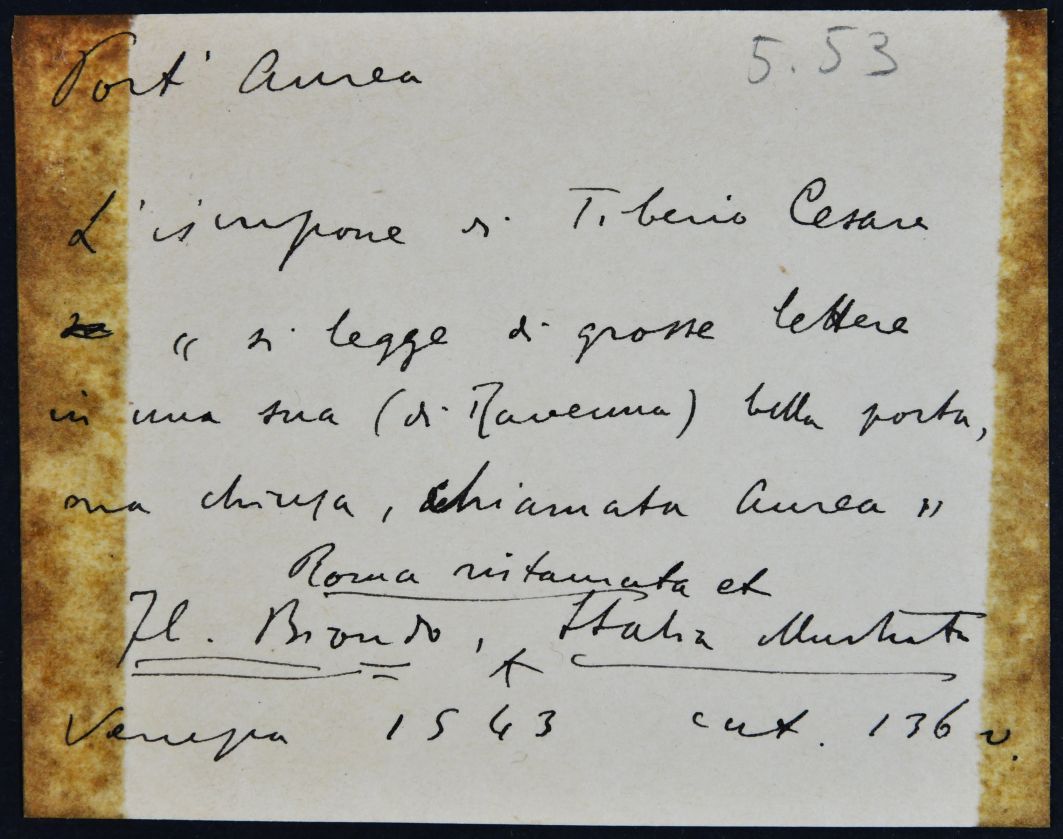 Port' Aurea
5.53
L'iscrizione di Tiberio Cesare
" si legge di grosse lettere
in una sua (di Ravenna) bella porta,
ma chiusa, chiamata Aurea "
Roma ristaurata et
Fl. Biondo, Italia illustrata
Venezia 1543 cart. 136 v.